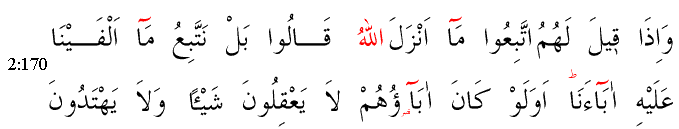 وَاِذَا قٖيلَ لَهُمُ اتَّبِعُوا مَٓا اَنْزَلَ اللّٰهُ قَالُوا بَلْ نَتَّبِعُ مَٓا اَلْفَيْنَا
2:170
عَلَيْهِ اٰبَٓاءَنَاؕ اَوَلَوْ كَانَ اٰبَٓاؤُ۬هُمْ لَا يَعْقِلُونَ شَيْـًٔا وَلَا يَهْتَدُونَ